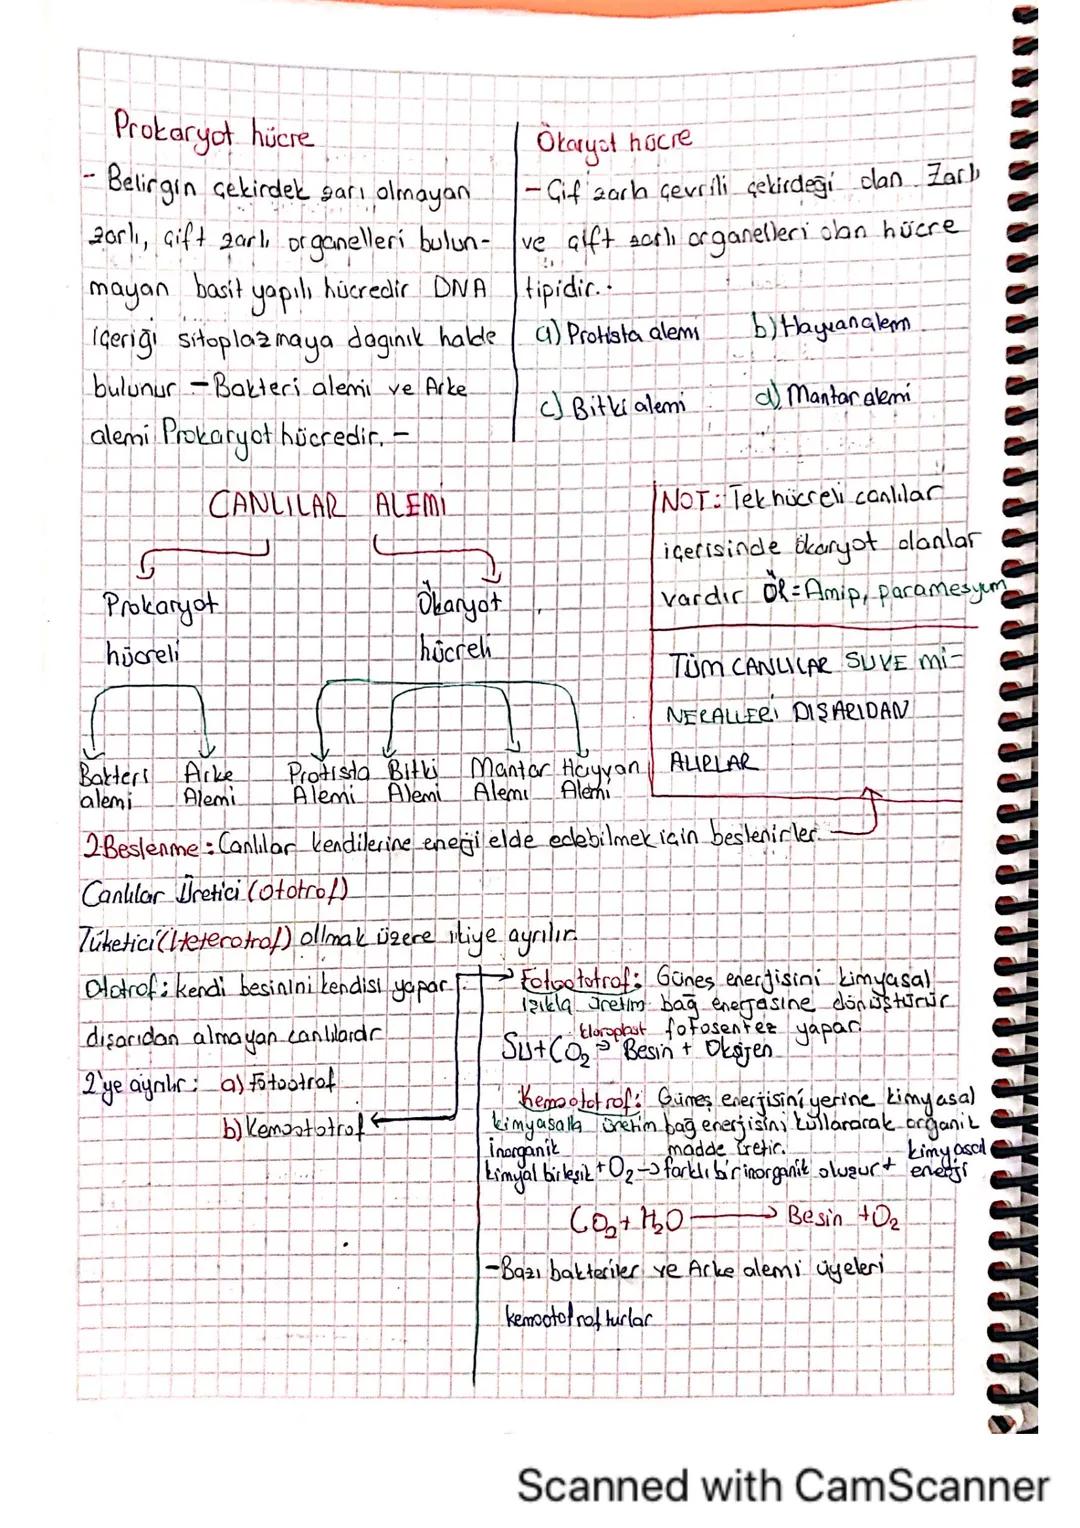 Prokaryot hücre
- Belirgin çekirdek zarı olmayan
zarlı, çift zarlı organelleri bulun-
mayan basit yapılı hücredir DNA
içeriği sitoplazmaya dağınık halde
bulunur - Bakteri alemi ve Arke
alemi Prokaryot hücredir. -
Ökaryot hücre
- Çif zarla çevrili çekirdeği olan. Zarlı
ve çift zarlı organelleri olan hücre
tipidir.
a) Protista alemi b) Hayvan alem
c) Bitki alemi d) Mantar alemi
CANLILAR ALEMİ
Prokaryot
hücreli
Ökaryot
hücreli
Bakteri
alemi
Arke
Alemi
Protista
Alemi
Bitki
Alemi
Mantar
Alemi
Hayvan
Alemi
NOT: Tek hücreli canlılar
içerisinde ökaryot olanlar
vardır ÖR = Amip, paramesyum
TÜM CANLILAR SU VE Mİ-
NERALLERİ DIŞARIDAN
ALIRLAR
2 Beslenme: Canlılar kendilerine enerji elde edebilmek için beslenirler.
Canlılar Üretici (Ototrof)
Tüketici (Heterotrof) ollmak üzere ikiye ayrılır.
Ototrof: kendi besinini kendisi yapar
dışarıdan almayan canlılardır
2'ye ayrılır: a) Fotootrof
b) Kemoototrof
Fotoototrof: Güneş enerjisini kimyasal
Işıkla üretim bağ enerjasine dönüştürür
kloroplast fotosentez yapar
Su + CO₂ → Besin + Oksijen
Kemoototrof: Güneş enerjisini yerine kimyasal
kimyasalla üretim bağ enerjisini kullanarak organik
madde üretir.
inorganik
kimyal birleşik + O₂ → farklı bir inorganik oluşur + kimyasal enerji
CO₂ + H₂O → Besin + O₂
- Bazı bakteriler ve Arke alemi üyeleri
kemoototrofturlar
Scanned with CamScanner